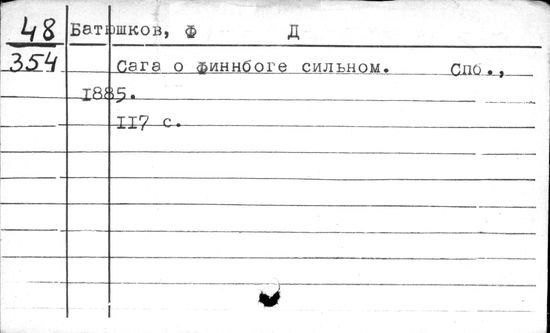 48 Батюшков, Ф Д
354 Сага о финнбоге сильном. Спб.,
1885.
117 с.